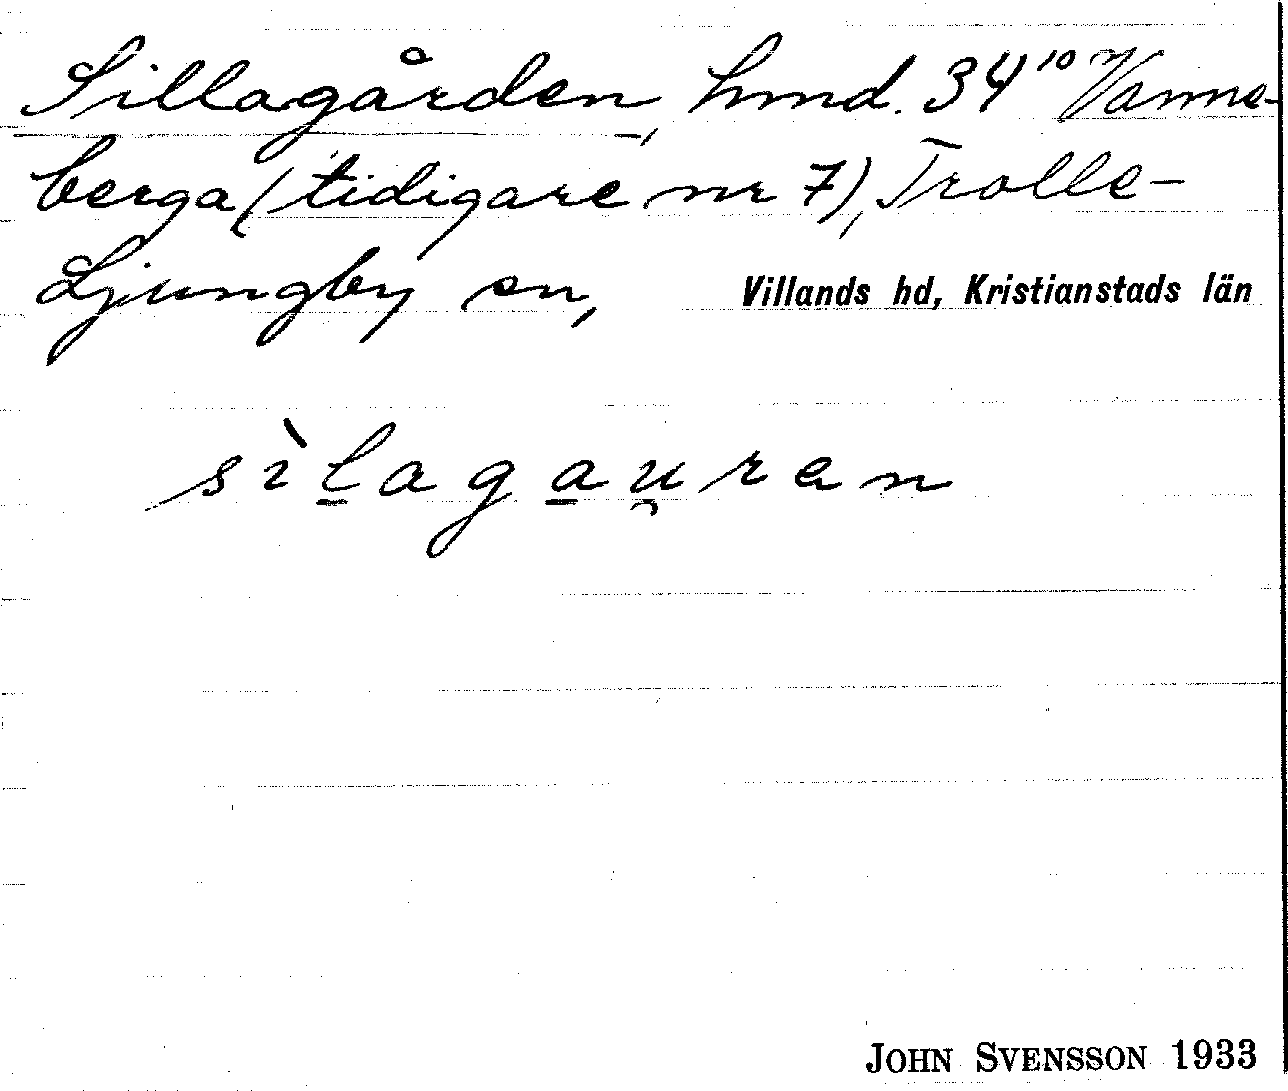 Sillagården, hmd. 34¹⁰ Vanne-
berga (tidigare nr 7), Trolle-
Ljungby sn, Villands hd, Kristianstads län
sìl̲aga̲u̯ran
JOHN SVENSSON 1933